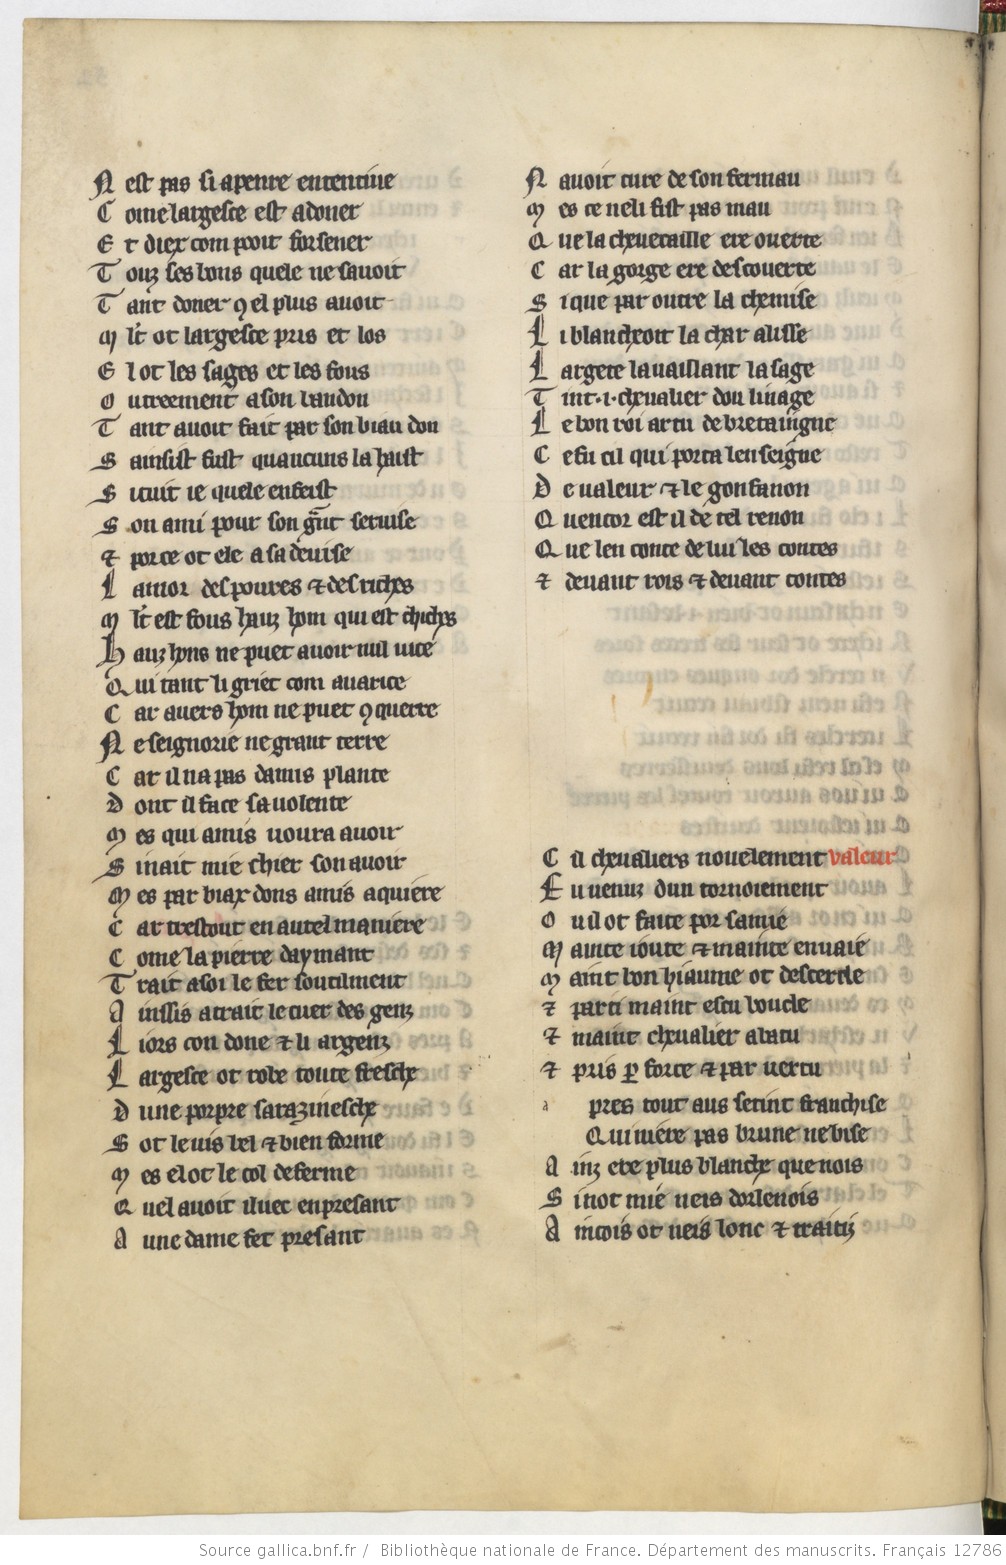 N est pas si a penre ententiue
C ome largesce est a doner
E t diex com pooit forsener
T ouz ses bons quele ne sauoit
T ant doner qel plus auoit
M lt ot largesce pris et los
E l ot les sages et les fous
O utreement a son bandon
T ant auoit fait par son biau don
S ainsist fust quaucuns la haist
S i cuit ie quele en feist
S on ami pour son gnt seruise
⁊ por ce ot ele a sa deuise
L amor des poures ⁊ des riches
M lt est fous hauz hom qui est chiches
H auz hons ne puet auoir nul uice
Q ui tant li griet com auarice
C ar auers hom ne puet 9querre
N e seignorie ne grant terre
C ar il na pas damis plante
D ont il face sa uolente
M es qui amis uoura auoir
S i nait mie chier son auoir
M es par biax dons amis aquiere
C ar trestout en autel maniere
C ome la pierre daymant
T rait a soi le fer soutilment
A inssis atrait le cuer des genz
L i ors con done ⁊ li argenz
L argesce ot robe toute fresche
D une porpre sarazinesche
S ot le uis bel ⁊ bien forme
M es el ot le col deferme
Q uel auoit iluec en presant
A une dame fet presant
N auoit cure de son fermau
M es ce ne li fist pas mau
Q ue la cheuecaille ere ouerte
C ar la gorge ere descouerte
S i que par outre la chemise
L i blancheoit la char alisse
L argete la uaillant la sage
T int .i. cheualier dou linage
L e bon roi artu de bretaingne
C e fu cil qui porta lenseigne
D e ualeur ⁊ le gonfanon
Q uencor est il de tel renon
Q ue len conte de lui les contes
⁊ deuant rois ⁊ deuant contes
C il cheualiers nouelement valeur
F u uenuz dun tornoiement
O u il ot faite por samie
M ainte ioute ⁊ mainte enuaie
M aint bon hiaume ot descercle
⁊ parti maint escu boucle
⁊ maint cheualier abatu
⁊ pris p force ⁊ par uertu
a pres touz aus se tint franchise
Qui niere pas brune ne bise
A inz ere plus blanche que nois
S i not mie neis dorlenois
A incois ot neis lonc ⁊ traitiz
Source gallica.bnf.fr / Bibliothèque nationale de France. Département des manuscrits. Français 12786